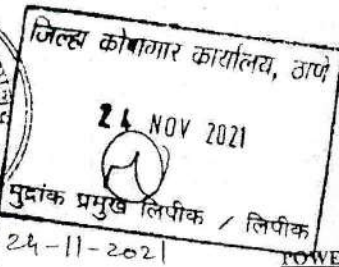 जिल्हा कोषागार कार्यालय, ठाणे
24 NOV 2021
मुद्रांक प्रमुख लिपीक / लिपीक
24-11-2021
POWE